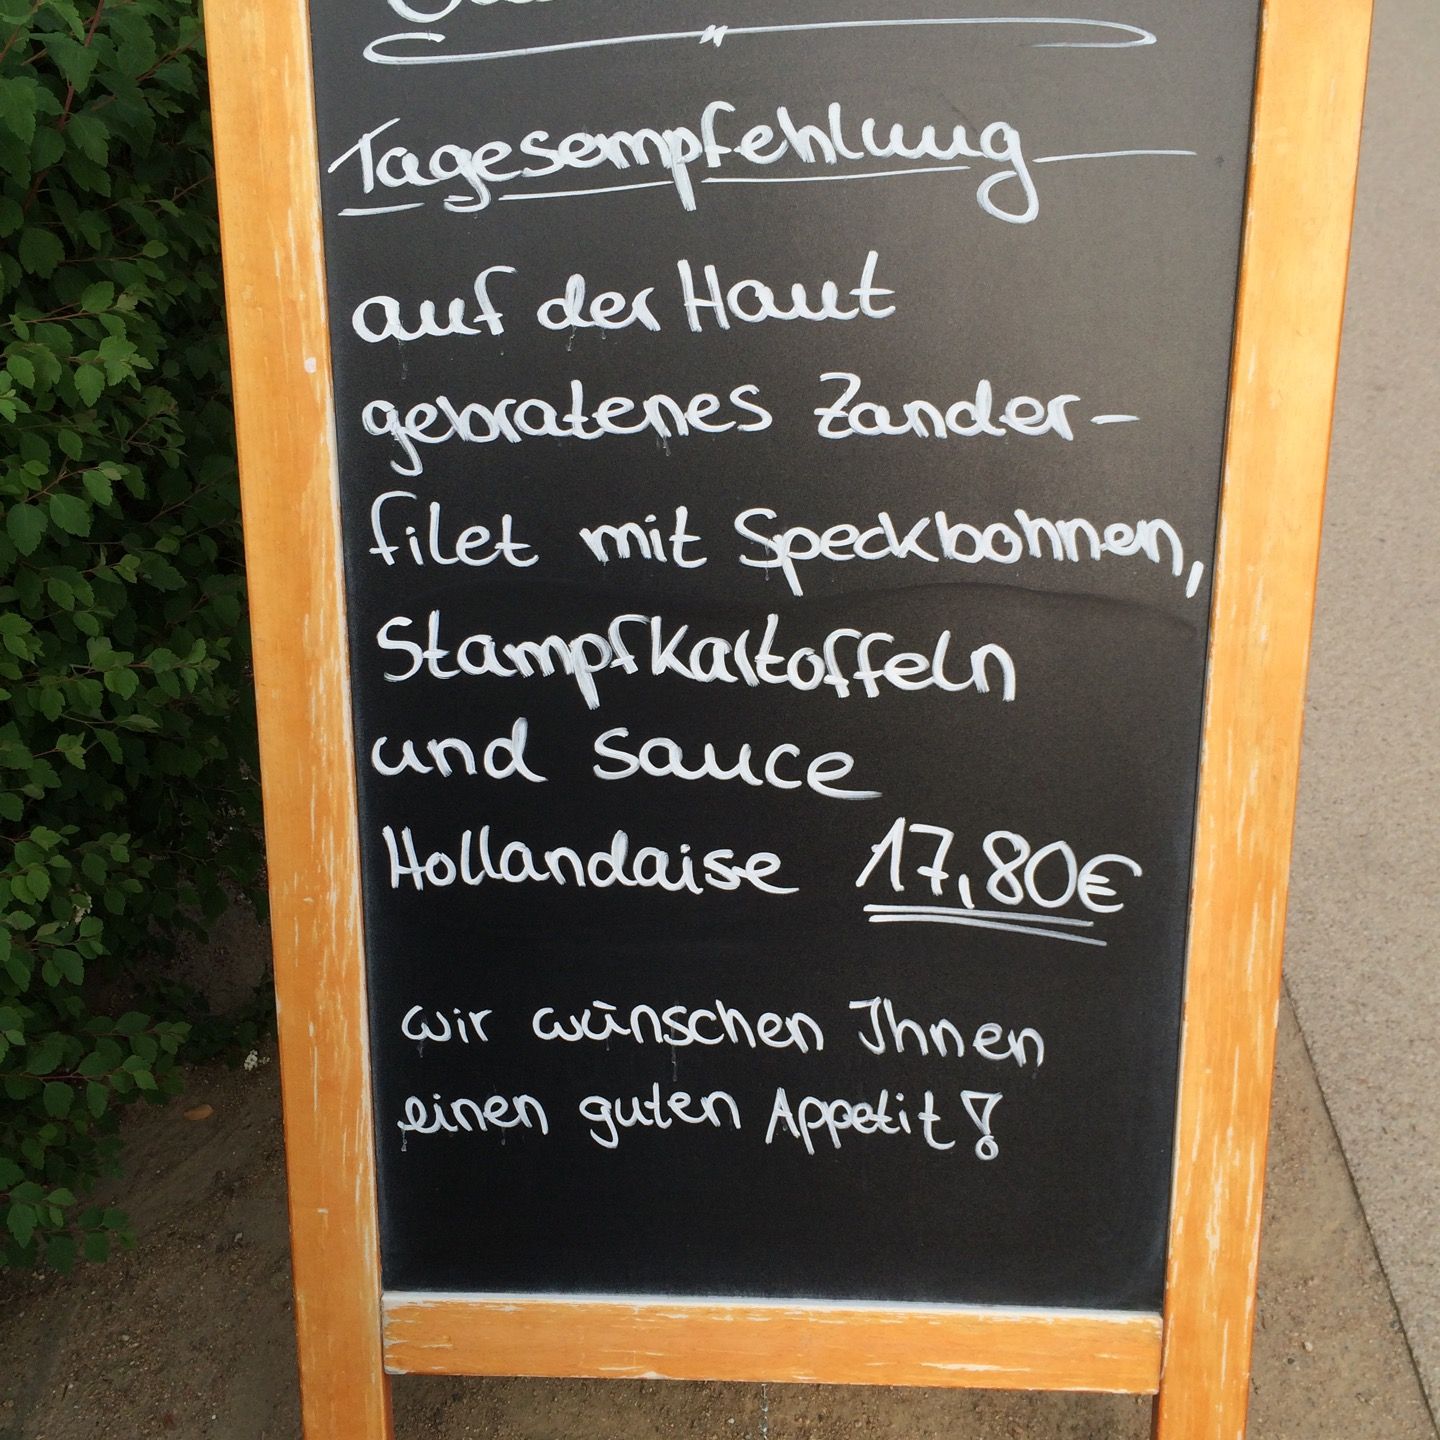 Tagesempfehlung
auf der Haut
gebratenes Zander-
filet mit Speckbohnen,
Stampfkartoffeln
und Sauce
Hollandaise 17,80€
wir wünschen Ihnen
einen guten Appetit!